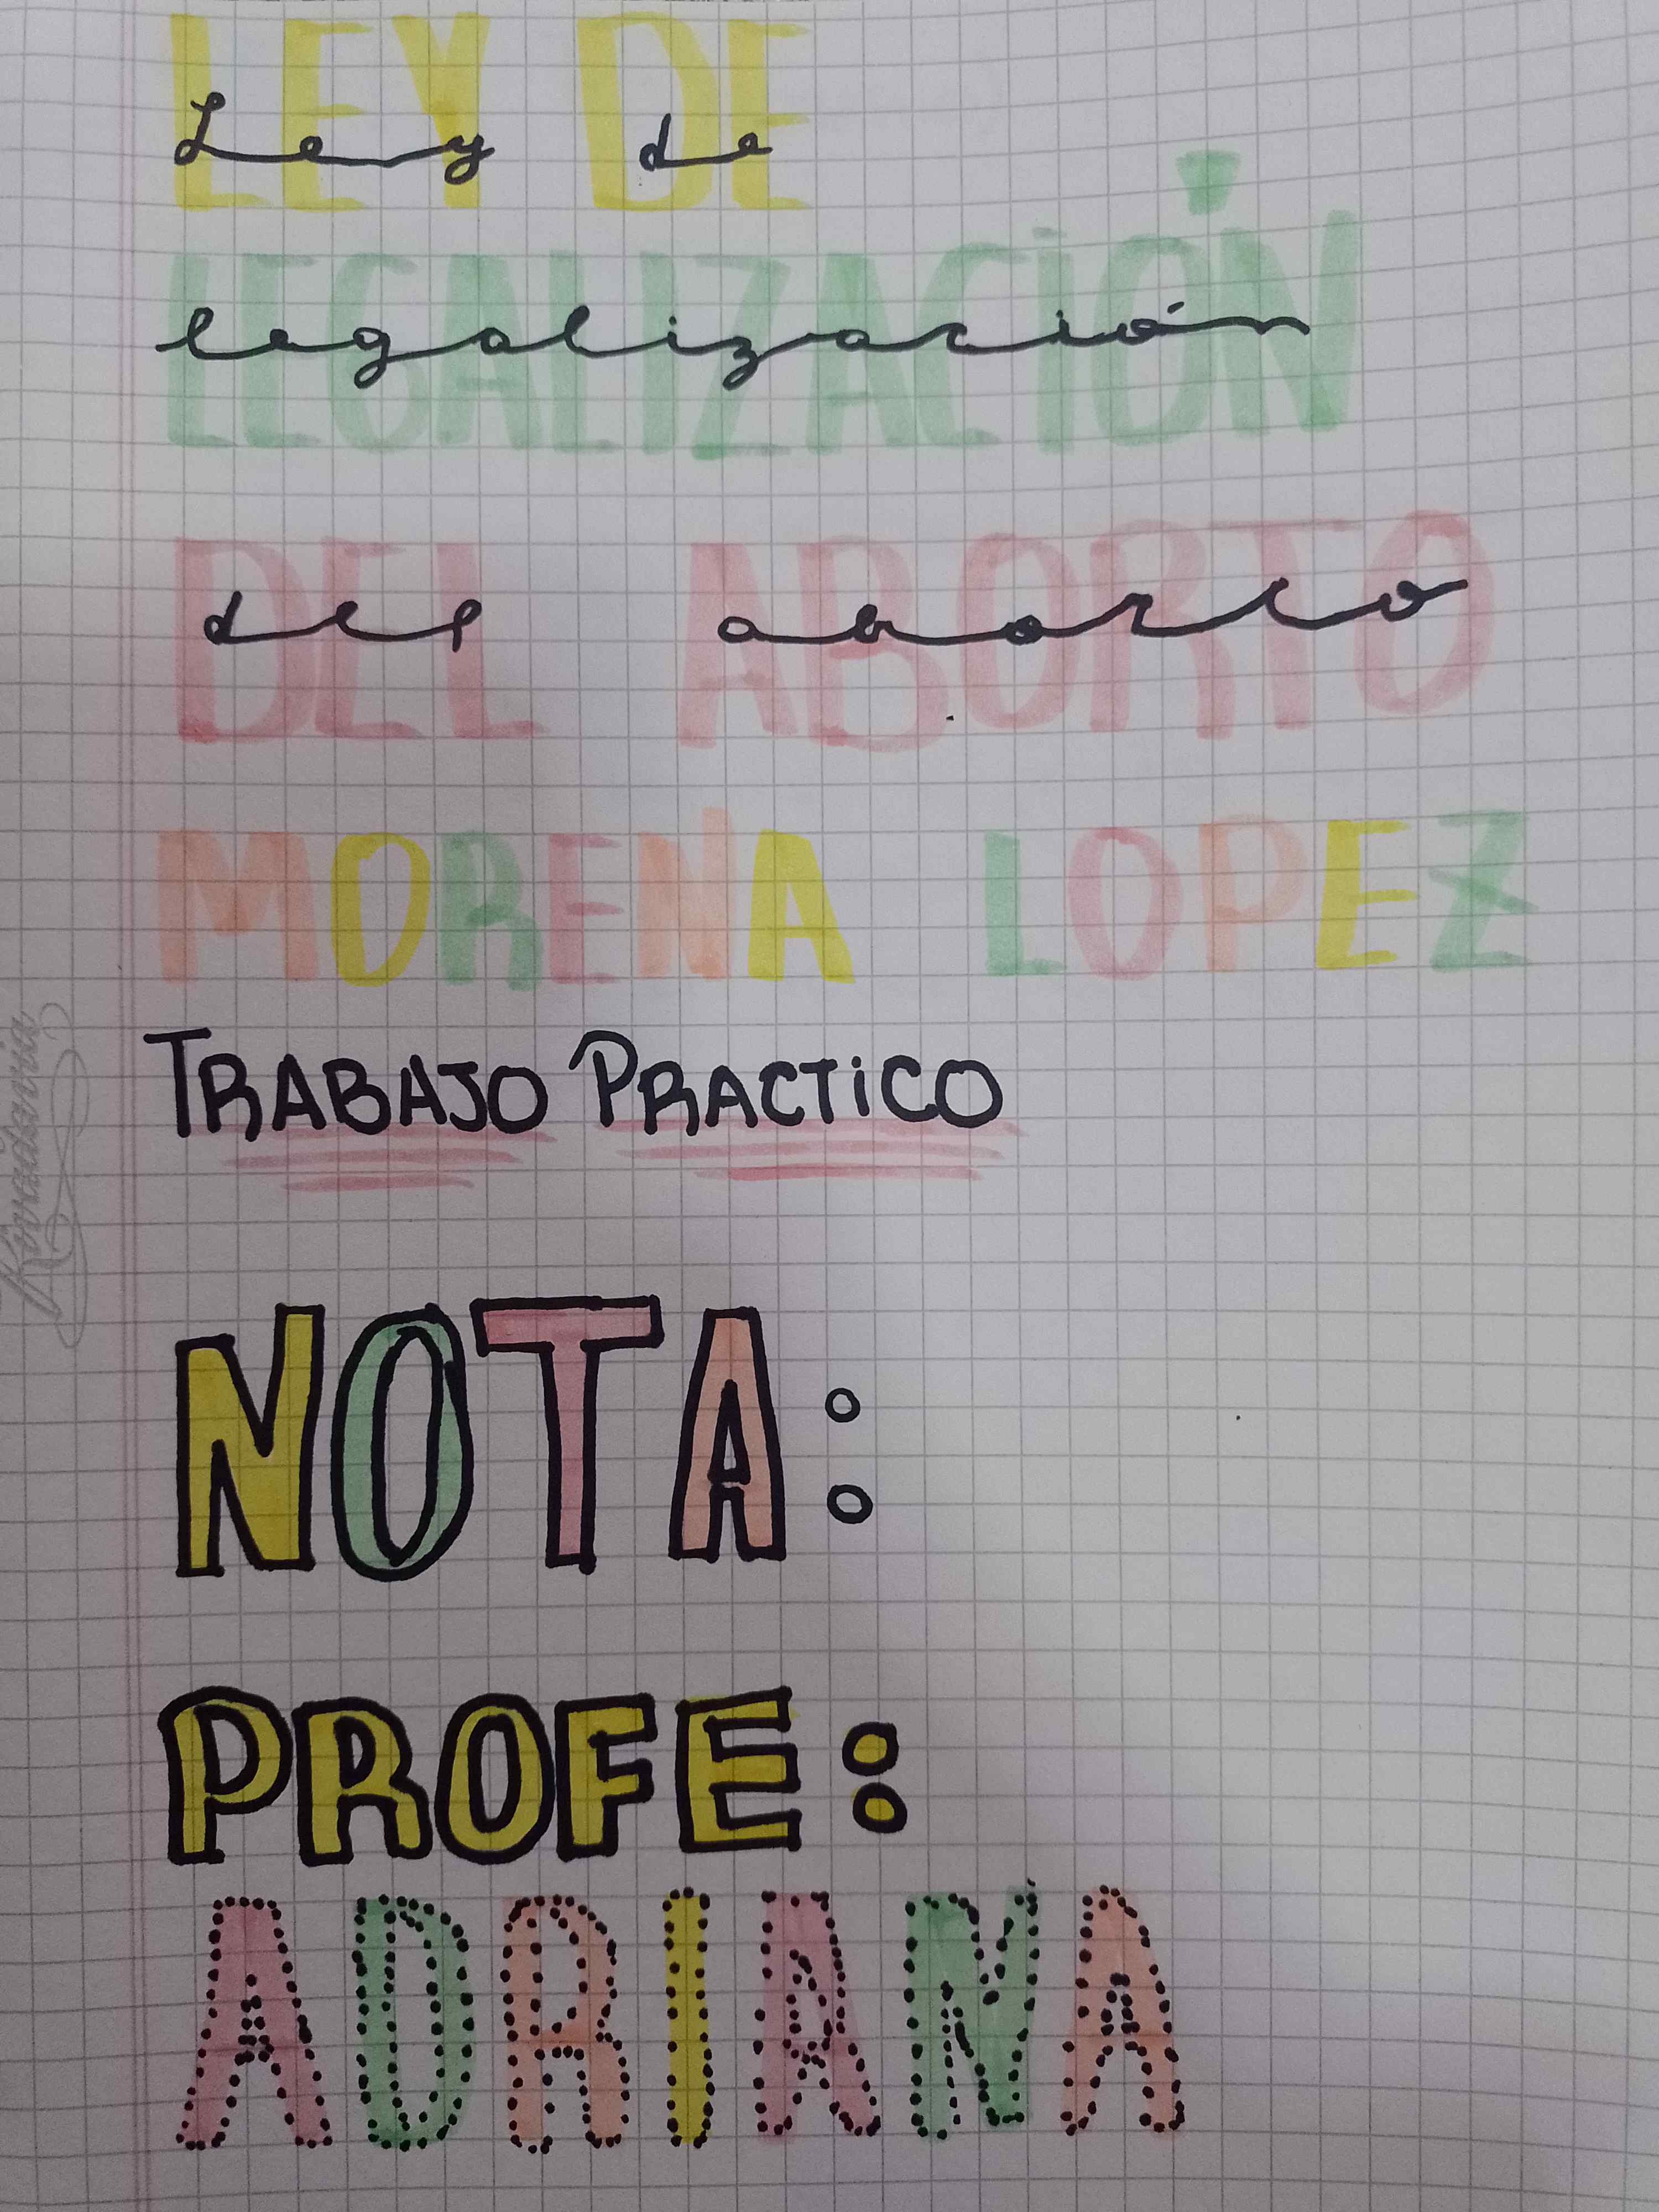 LEY DE
Ley de
LEGALIZACIÓN
legalización
DEL ABORTO
del aborto
MORENA LOPEZ
TRABAJO PRACTICO
Rivadavia
NOTA:
PROFE:
ADRIANA